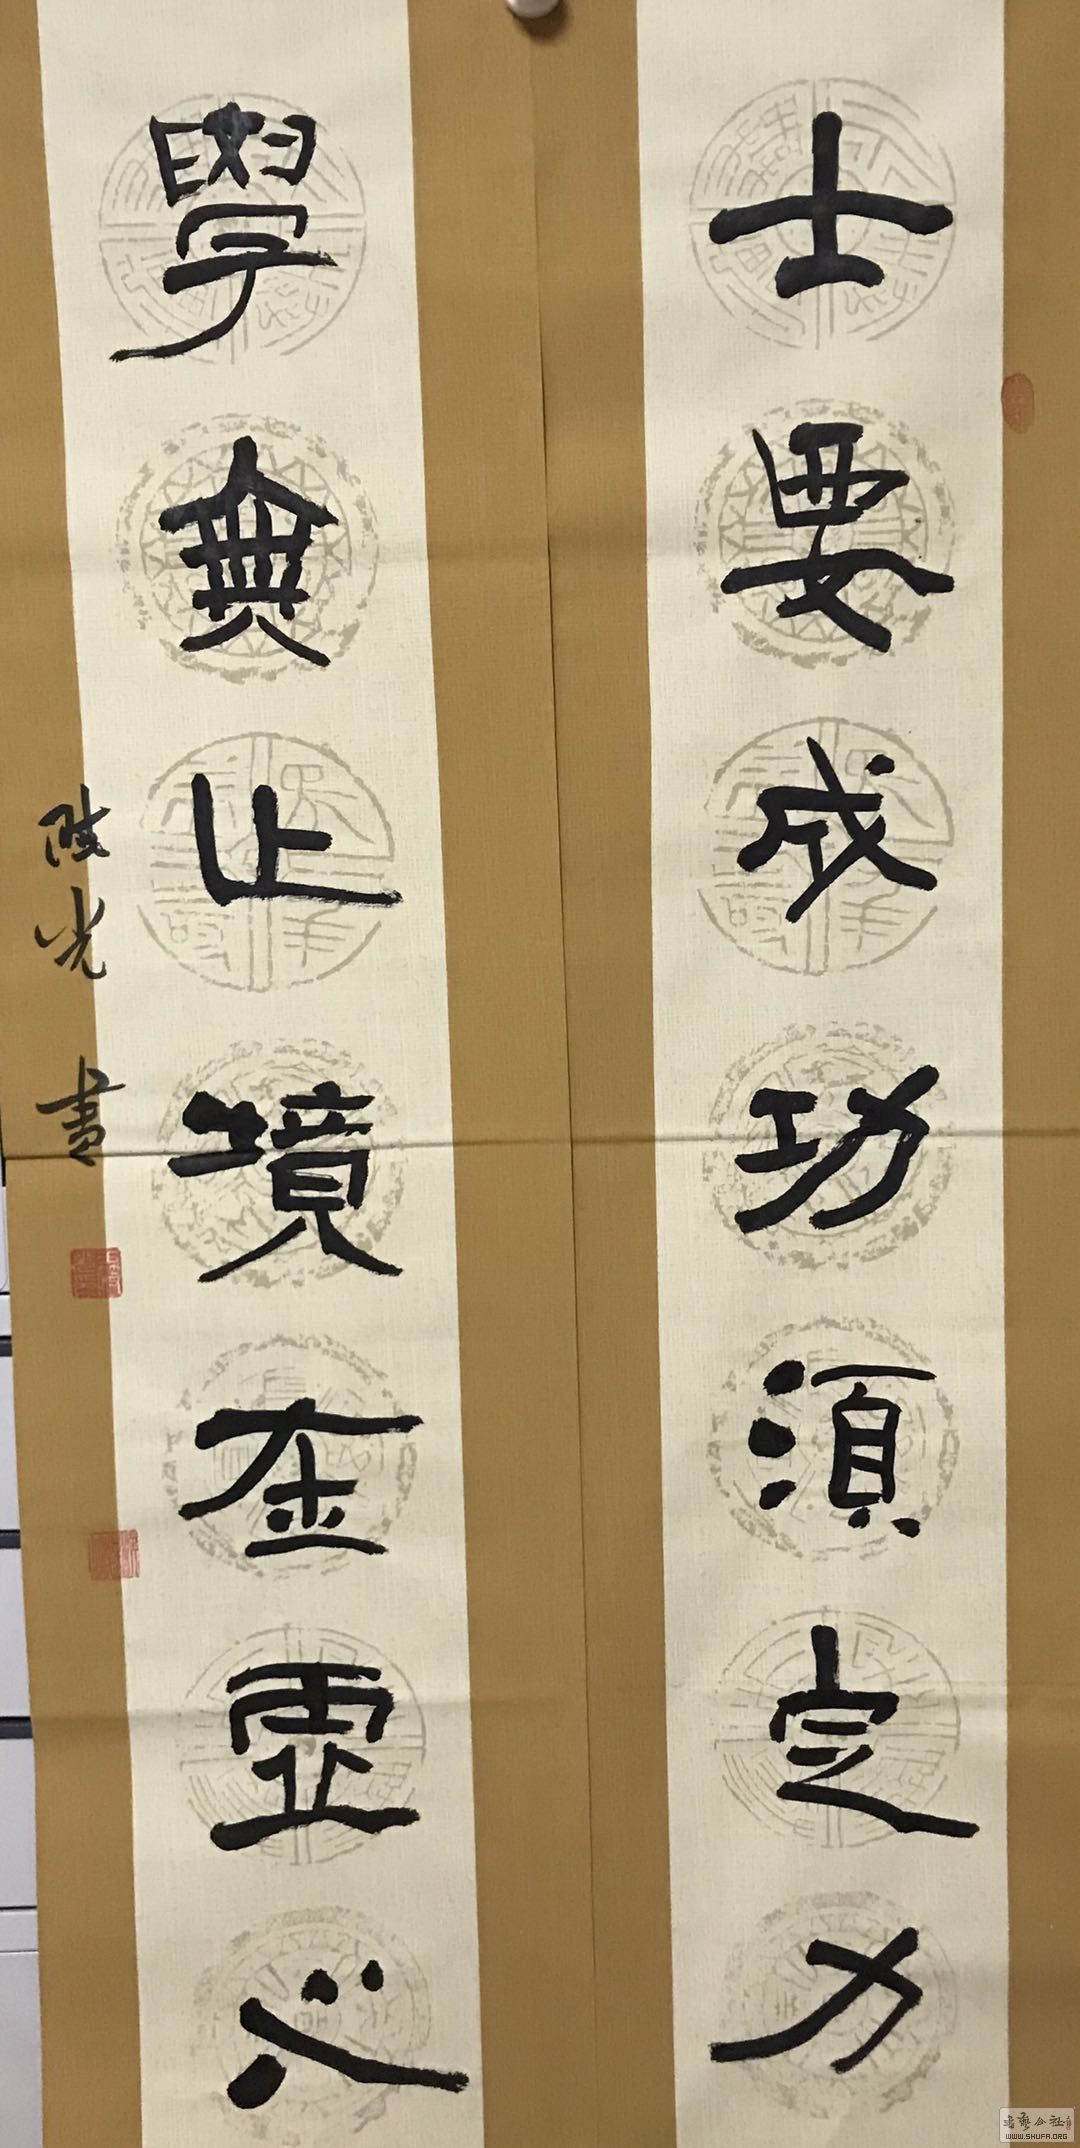 士要成功須定力
學無止境在虛心
光書
书艺公社
WWW.SHUFA.ORG